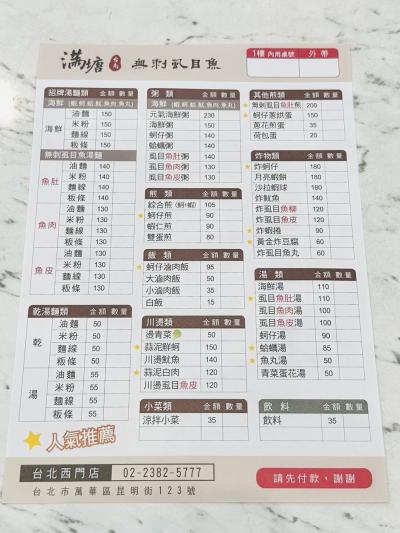 滿塘 台南 無刺虱目魚
1樓 內用桌號 外帶
招牌湯麵類 金額 數量
海鮮 (蝦.蚵.蛤.魷.魚肉.魚丸)
海鮮
油麵 150
米粉 150
麵線 150
粄條 150
無刺虱目魚湯麵
魚肚
油麵 140
米粉 140
麵線 140
粄條 140
魚肉
油麵 130
米粉 130
麵線 130
粄條 130
魚皮
油麵 130
米粉 130
麵線 130
粄條 130
乾湯麵類 金額 數量
乾
油麵 50
米粉 50
麵線 50
粄條 50
湯
油麵 55
米粉 55
麵線 55
粄條 55
人氣推薦
粥類 金額 數量
海鮮 (蝦.蚵.蛤.魷.魚肉.魚丸)
元氣海鮮粥 230
海鮮粥 150
蚵仔粥 140
蝦仁粥 140
虱目魚肚粥 140
虱目魚肉粥 130
虱目魚皮粥 130
煎類 金額 數量
綜合煎 (蚵+蝦) 105
蚵仔煎 90
蝦仁煎 90
雙蛋煎 80
飯類 金額 數量
蚵仔滷肉飯 95
大滷肉飯 50
小滷肉飯 35
白飯 15
川燙類 金額 數量
燙青菜 50
蒜泥鮮蚵 150
川燙魷魚 140
蒜泥白肉 120
川燙虱目魚皮 120
小菜類 金額 數量
涼拌小菜 35
其他煎類 金額 數量
無刺虱目魚肚煎 200
蚵仔蔥烘蛋 150
蔥花煎蛋 35
荷包蛋 20
炸物類 金額 數量
炸蚵仔 180
月亮蝦餅 180
沙拉蝦球 180
炸魷魚 140
炸虱目魚柳 120
炸虱目魚皮 120
炸蝦捲 90
黃金炸豆腐 60
炸虱目魚丸 60
湯類 金額 數量
海鮮湯 110
虱目魚肚湯 110
虱目魚肉湯 100
虱目魚皮湯 100
蚵仔湯 90
蛤蠣湯 85
魚丸湯 50
青菜蛋花湯 50
飲料 金額 數量
飲料 35
台北西門店 02-2382-5777
台北市萬華區昆明街123號
請先付款，謝謝